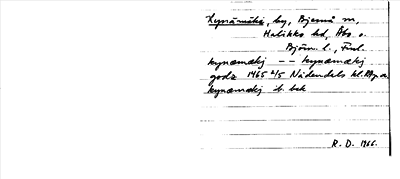 Kynämäki, by, Bjernå sn,
Halikko hd, Åbo o.
Björn. l., Finl.
kynæmækj -- kynæmækj
godz 1465 2/5 Nådendals kl.
kynæmækj ib. bsk
R. D. 1966.